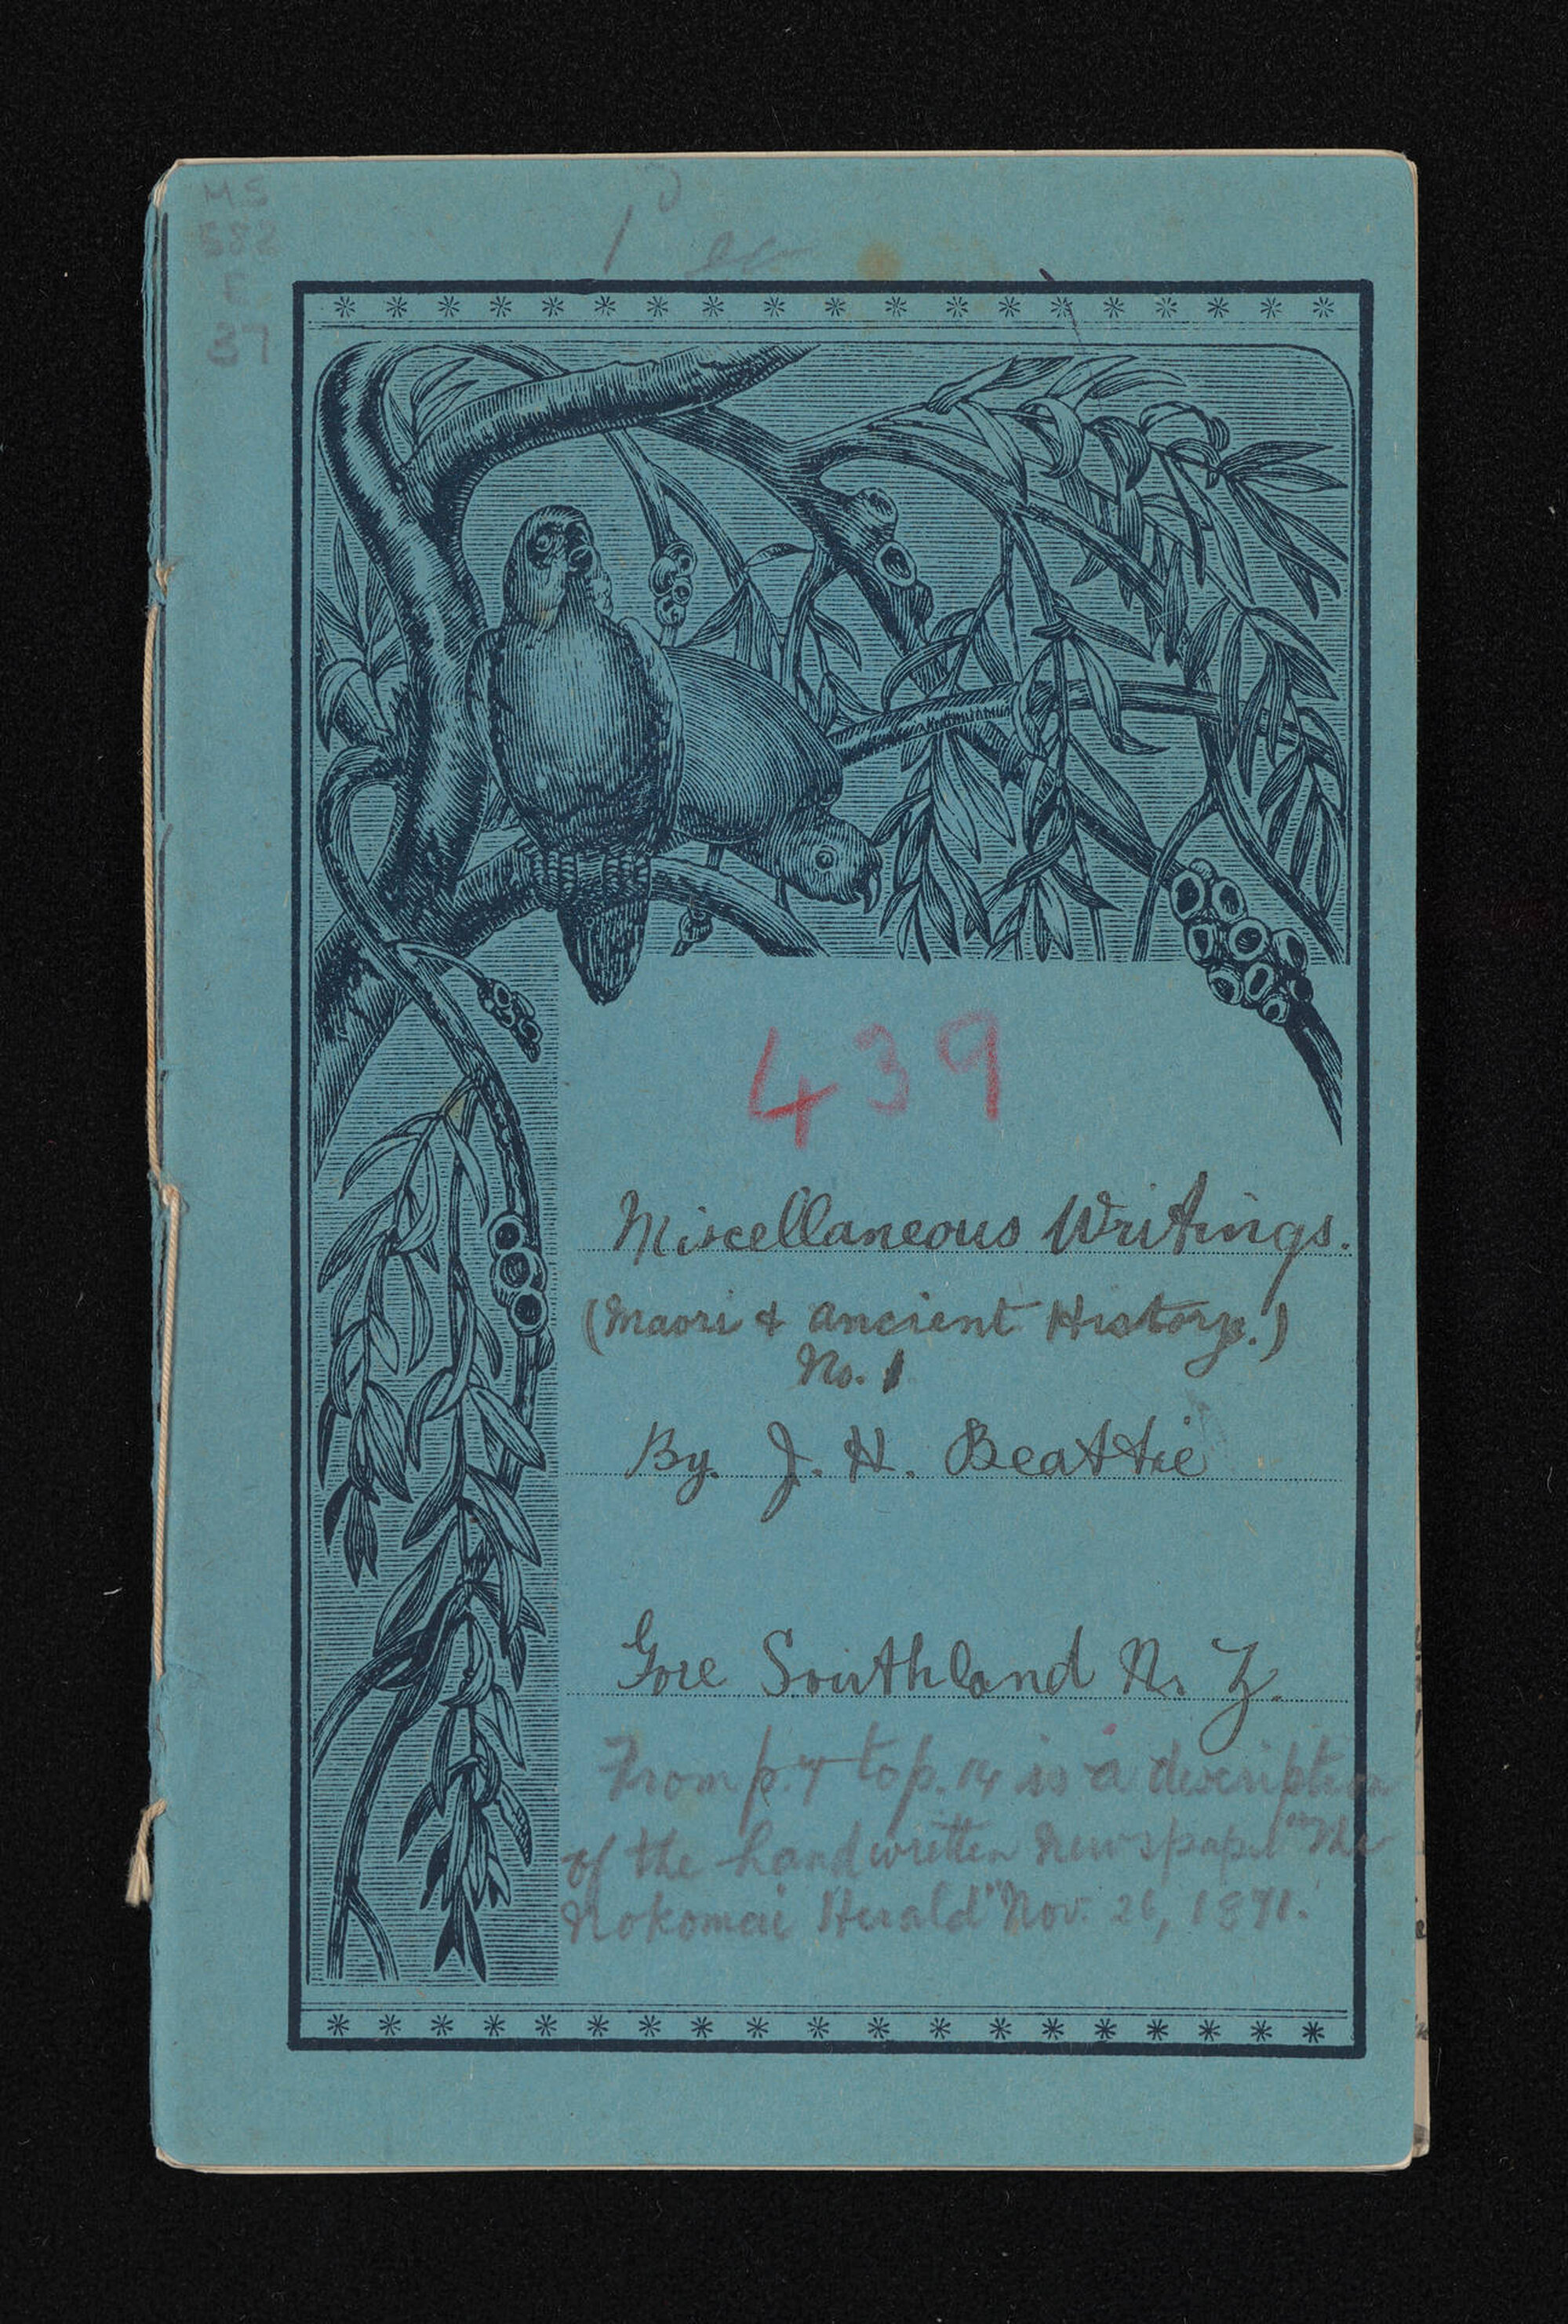 MS
582
E
37
439
Miscellaneous Writings.
(Maori & Ancient History.)
No. 1
By. J. H. Beattie
Gore Southland N. Z.
From p. 7 to p. 14 is a description
of the handwritten Newspaper "The
Nokomai Herald" Nov. 26, 1871.